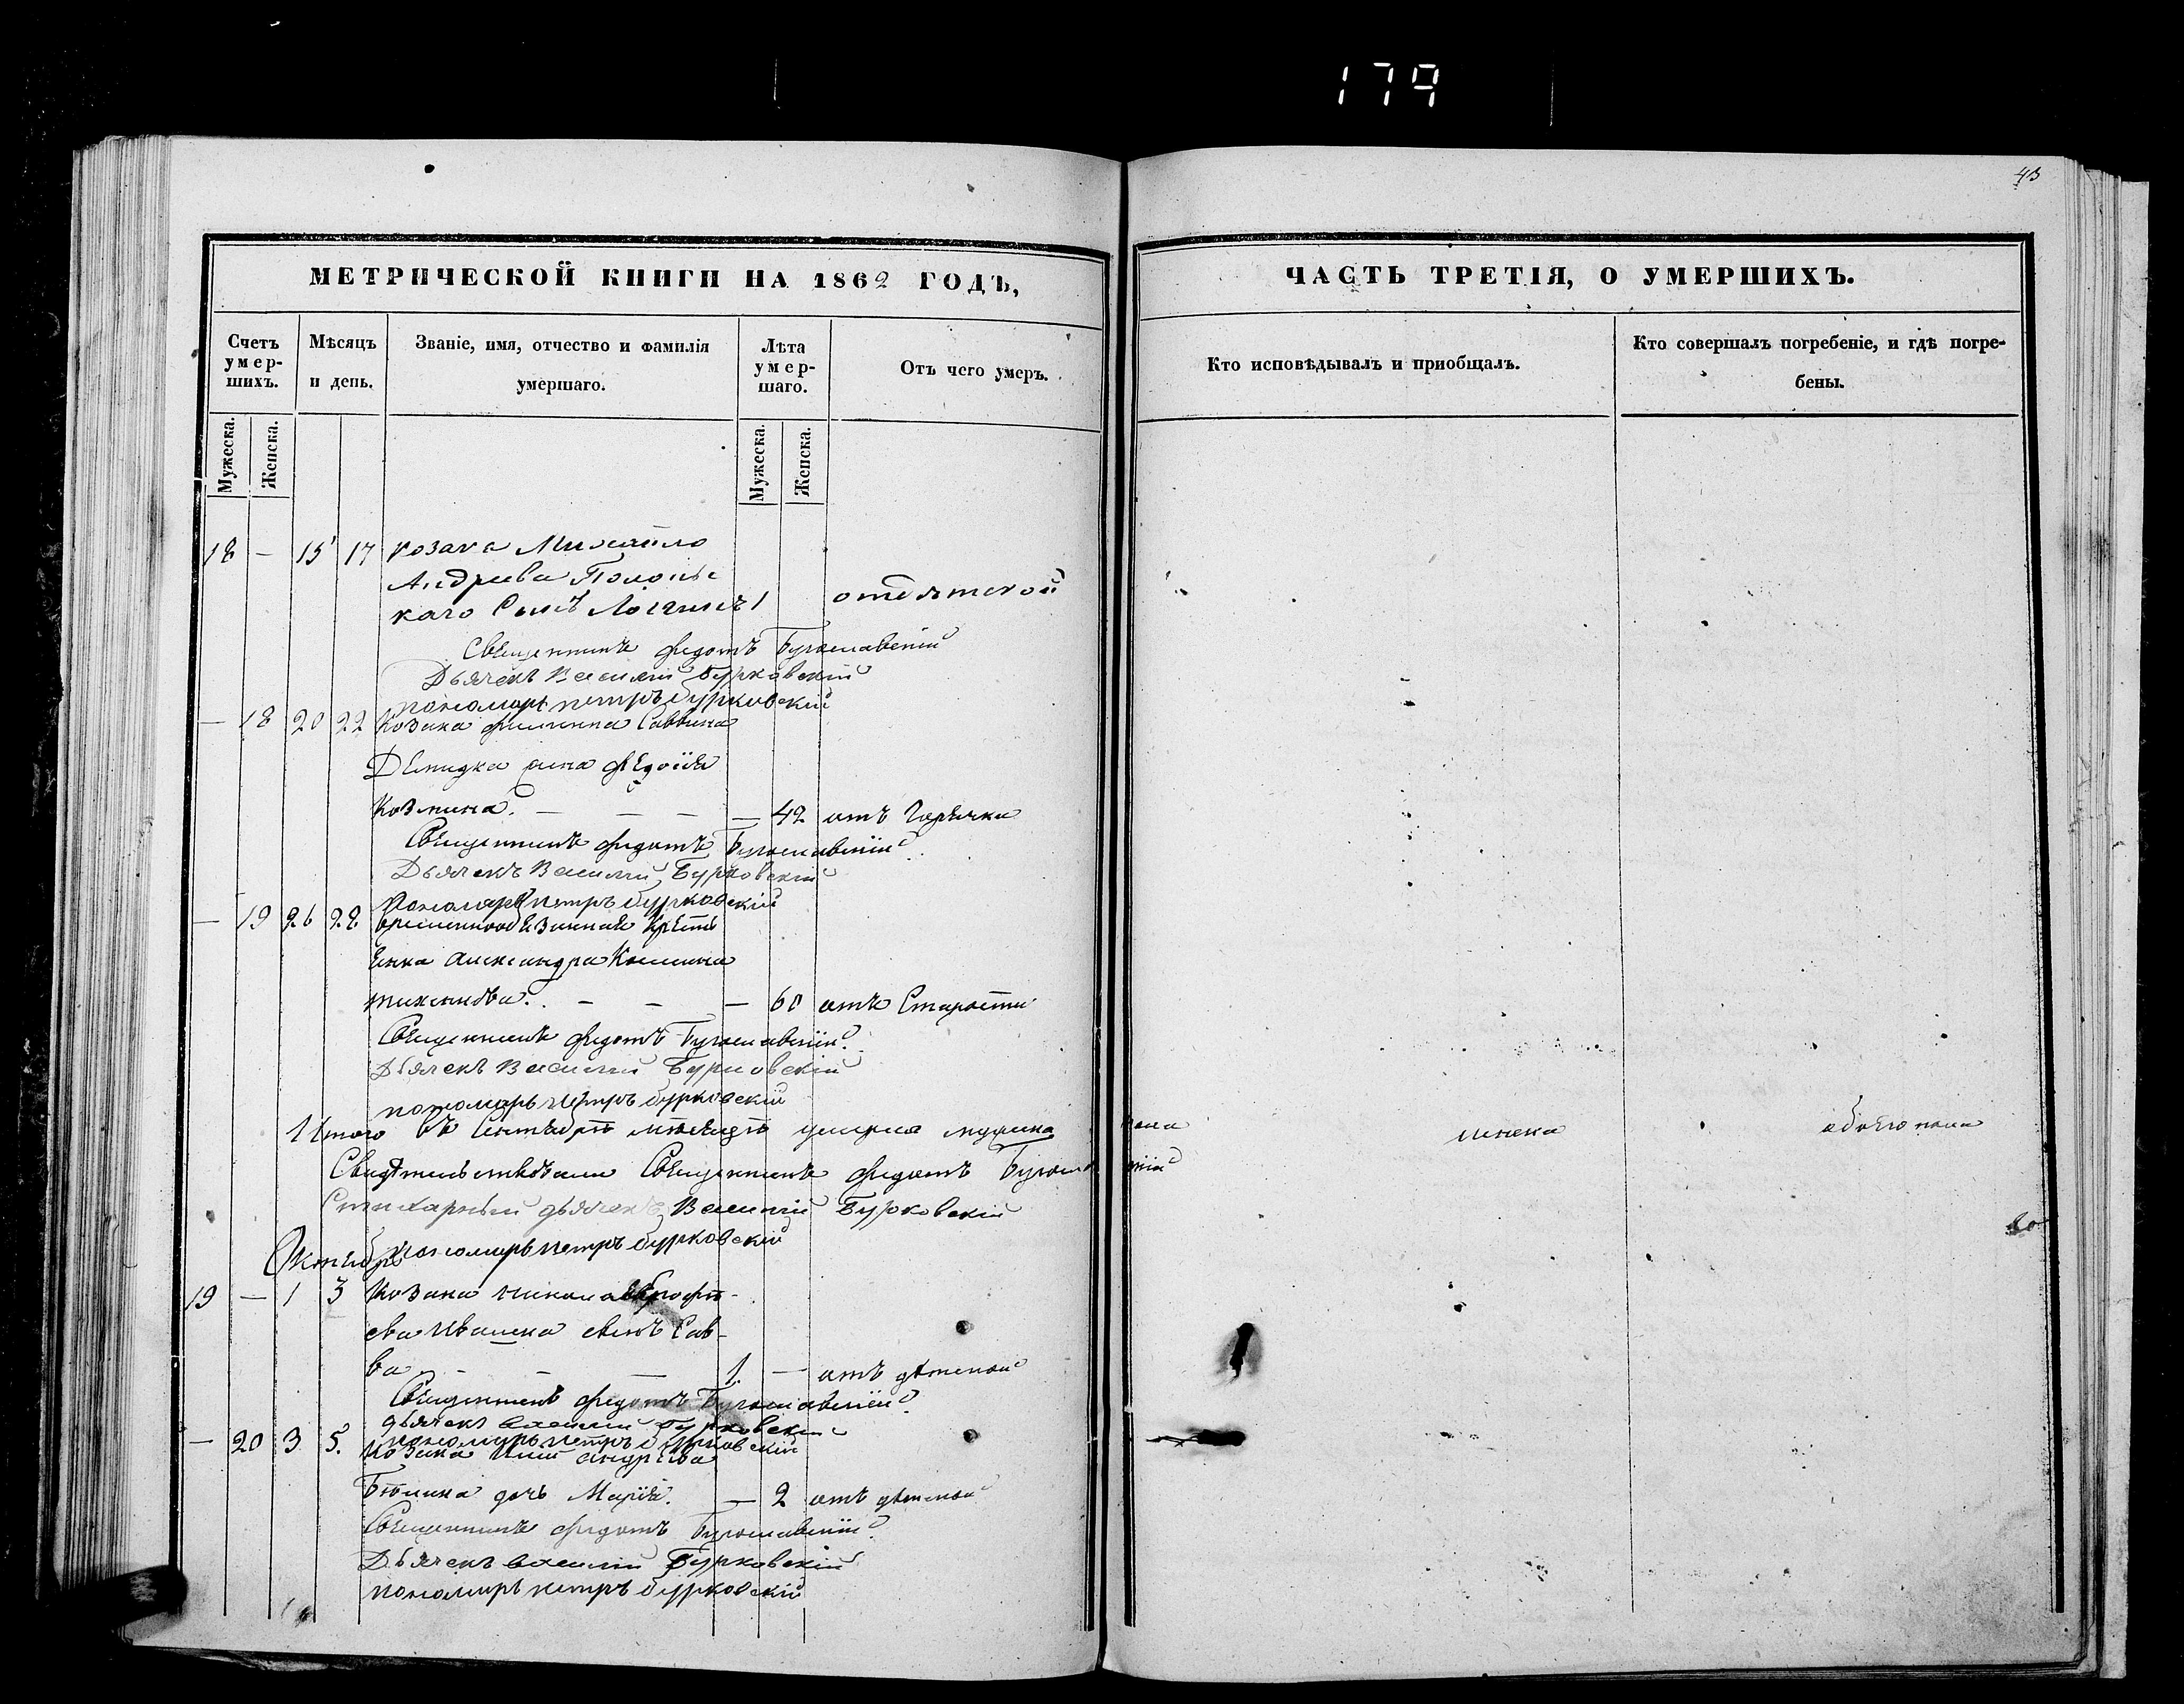 179
43
МЕТРИЧЕСКОЙ КНИГИ НА 1862 ГОДЪ,
ЧАСТЬ ТРЕТІЯ, О УМЕРШИХЪ.
Счетъ умер-шихъ.
Мѣсяцъ и день.
Званіе, имя, отчество и фамилія умершаго.
Лѣта умер-шаго.
Отъ чего умеръ.
Кто исповѣдывалъ и приобщалъ.
Кто совершалъ погребеніе, и гдѣ погре-бены.
Мужеска.
Женска.
Мужеска.
Женска.
18 — 15 17 козака Михайло
Андреева
каго Сынъ Логинъ 1
Священникъ Федотъ Богославскій
Дьячекъ Василій Бурковскій
пономарь петръ бурковскій
— 18 20 22 Козака Филиппа Саввина
Демидка
Козмина. — — — — 42 отъ Горячки
Священникъ Федотъ Богославскій
Дьячекъ Василій Бурковскій
Пономарь петръ бурковскій
— 19 26 28 временнообязанная Крестя
Александра
— — — 60 отъ Старости
Священникъ Федотъ Богославскій
Дьячекъ Василій Бурковскій
пономарь петръ бурковскій
Итого въ Сентябрѣ мѣсяцѣ умерло мужеска пола женска обоего пола
Свидѣтельствовали Священникъ Федотъ
Стихарный дьячекъ Василій Бурковскій
пономарь петръ бурковскій
Октябрь
19 — 1 3 Козака
ева Ивашка сынъ Сав-
ва — — — 1. — отъ дѣтской
Священникъ Федотъ Богославскій
дьячекъ василій Бурковскій
пономарь петръ бурковскій
— 20 3 5. Козака андреева
дочь Марія. — 2 отъ дѣтской
Священникъ Федотъ Богославскій
Дьячекъ василій Бурковскій
пономарь петръ бурковскій